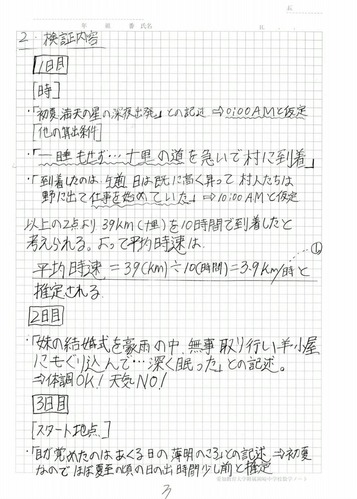 年 組 番 氏名
2. 検証内容
1日目
[時]
・「初夏 満天の星の深夜出発」との記述 ⇒ 0:00AMと仮定
[他の算出条件]
・「一睡もせず…十里の道を急いで村に到着」
・「到着したのは、午前 日は既に高く昇って 村人たちは
野に出て仕事を始めていた」⇒10:00AMと仮定
以上の2点より 39km(十里)を10時間で到着したと
考えられる。よって平均時速は、
平均時速 = 39(km)÷10(時間)=3.9km/時と
推定される
2日目
・「妹の結婚式を豪雨の中、無事取り行い羊小屋
にもぐり込んで…深く眠った」との記述。
⇒体調OK! 天気NO!
3日目
[スタート地点]
・「目が覚めたのはあくる日の薄明のころ」との記述 ⇒ 初夏
なのでほぼ夏至の頃の日の出時間少し前と推定
愛知教育大学附属岡崎中学校数学ノート
3